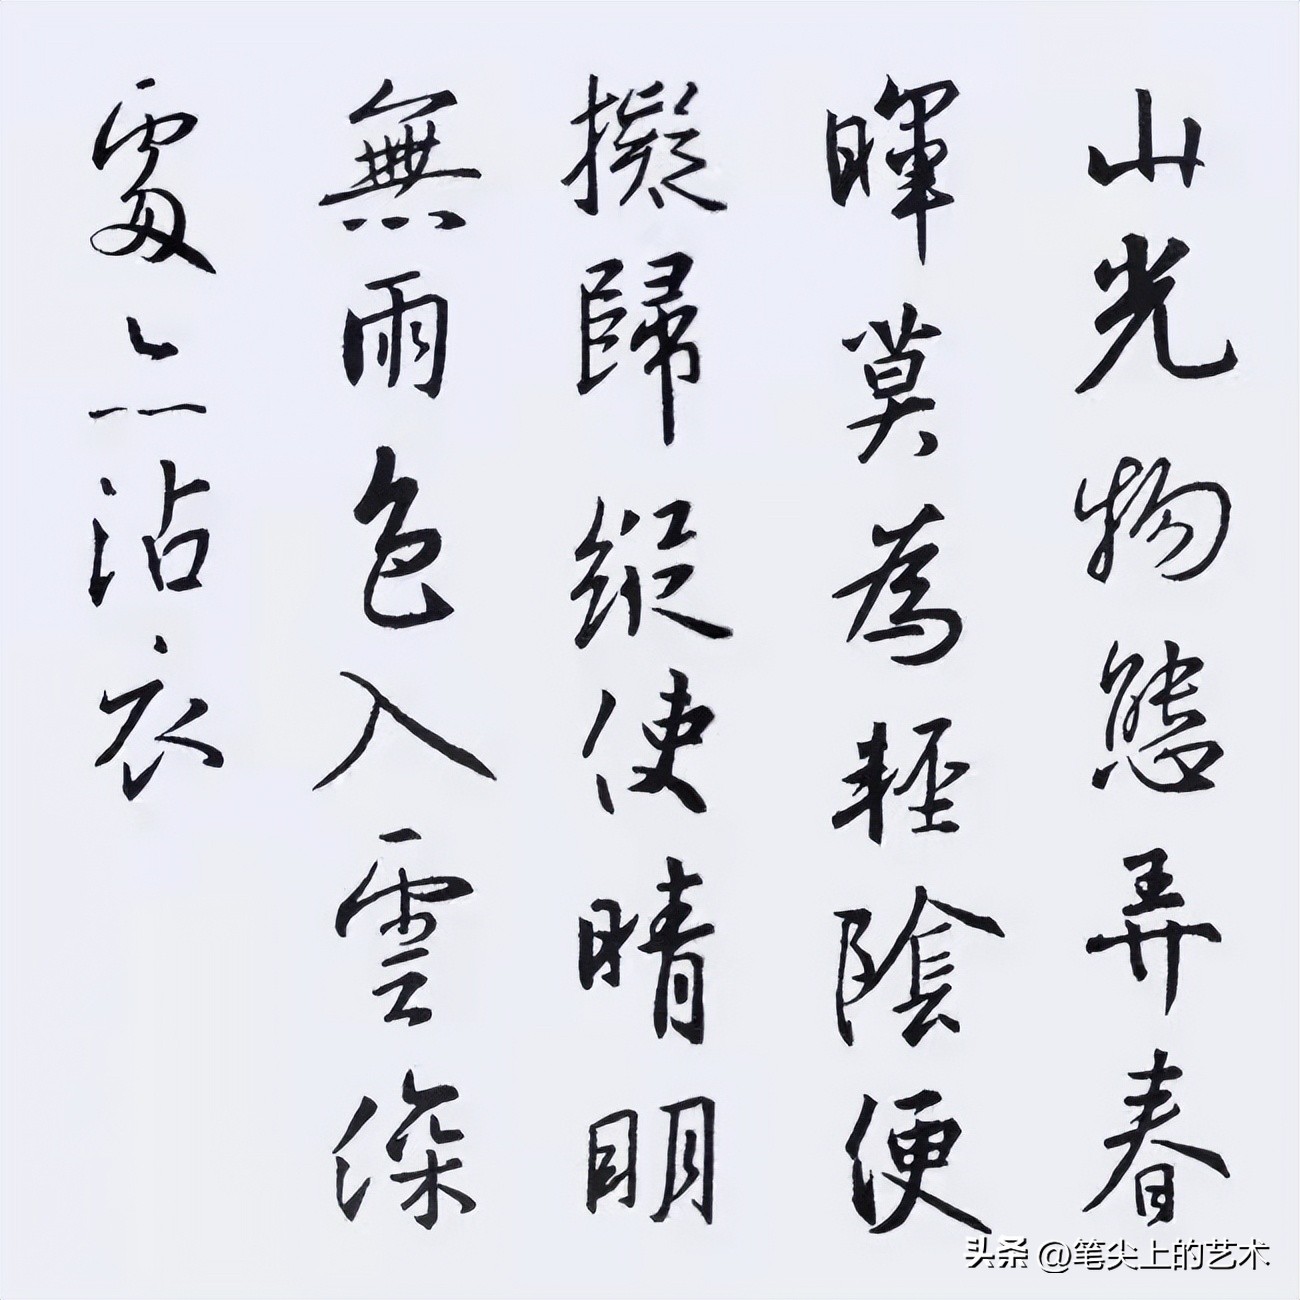 山光物態弄春
暉莫為輕陰便
擬歸縱使晴明
無雨色入雲深
處亦沾衣
头条 @笔尖上的艺术